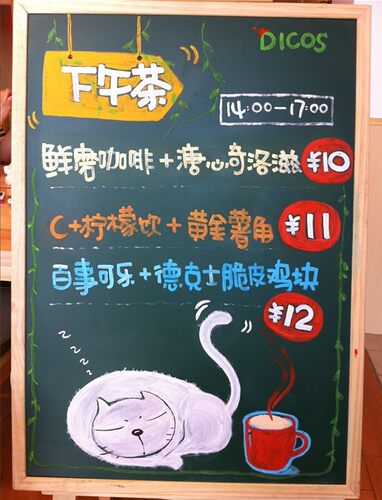 DICOS
下午茶
14:00-17:00
鲜磨咖啡+溏心奇洛滋 ¥10
C+柠檬饮+黄金薯角 ¥11
百事可乐+德克士脆皮鸡块
¥12
z z z z